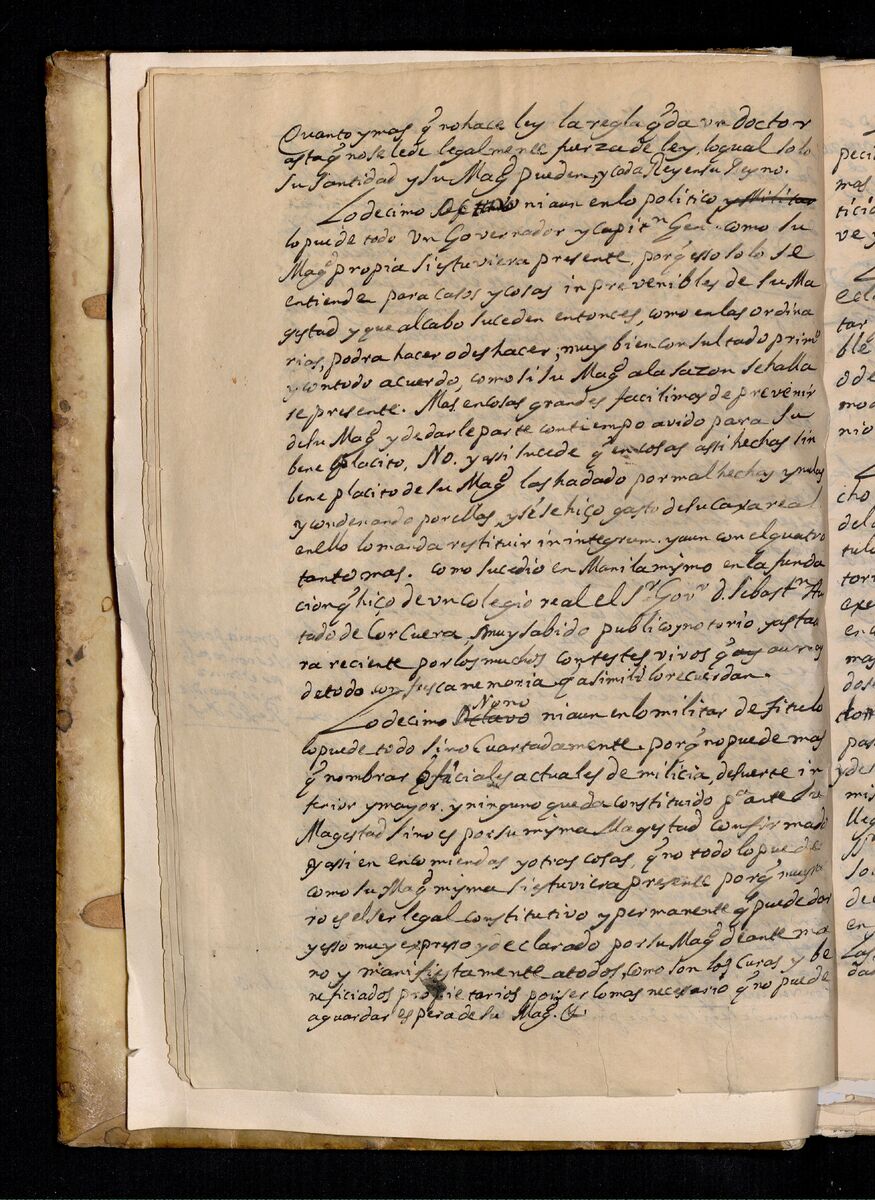 Quanto y mas q̃ no hace ley la regla q̃ da un doctor
asta q̃ no se le de legalmente fuerza de ley, lo qual solo
su Santidad y su Mag.d pueden, y cada Rey en su Reyno.
Lo decimo Octavo ni aun en lo politico y Militar
lo puede todo un Governador y Capit.n Gen.l como su
Mag.d propia si estuviera presente, porq̃ esso solo se
entiende para casos y cosas inprevenibles de su Ma
gestad y que al cabo suceden entonces, como en las ordina
rias, podra hacer o deshacer, muy bien consultado prim.o
y con todo acuerdo, como si su Mag.d a la sazon se halla
se presente. Mas en cosas grandes facilimas de prevenir
de su Mag.d y de darle parte con tiempo avido para su
bene placito, No. y assi sucede q̃ en cosas assi hechas sin
bene placito de su Mag.d las ha dado por mal hechas y nulas
y condenando por ellas, y si se hiço gasto de su caxa real
en ello lo manda restituir in integrum. y aun con el quatro
tanto mas. como sucedio en Manila mysmo en la funda
cion q̃ hiço de un colegio real el S.r Gov.r d. Sebast.n Hu
tado de Corcuera, muy sabido publico y notorio, y asta a
ra reciente por los muchos contestes vivos q̃ ay aun oy
de todo con fresca memoria q̃ asimil.o lo recuerdan.
Nono
Lo decimo Octavo ni aun en lo militar de titulo
lo puede todo sino Cuartadamente. porq̃ no puede mas
q̃ nombrar oficiales actuales de milicia, de suerte in
ferior y mayor. y ninguno queda constituido p.a ante su
Magestad sino es por su mysma Magestad confirmado
y assi en encomiendas y otras cosas, q̃ no todo lo puede
como su Mag.d mysma si estuviera presente porq̃
ro es el ser legal constitutivo y permanente q̃ puede dar
y esso muy expresso y declarado por su Mag.d de ante ma
no y manifiestamente a todos, como son los Curas y be
neficiados propietarios por ser lo mas necessario q̃ no puede
aguardar espera de su Mag.d &.